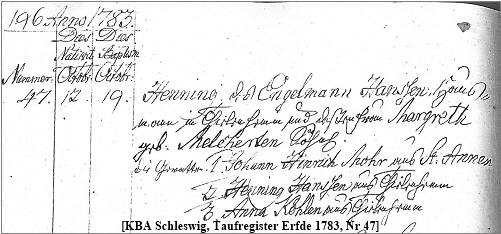 196. Anno 1783.
Dies Dies
Nativit. Baptism.
Nummer. Octobr. Octobr.
47. 12. 19. Henning, des Engelmann Hanssen Haus-
mann zu und dessen Frau Margreth
geb. Melcherten Sohn
die Gevattern. 1 Johann Hinrich Mohr aus St. Annen
2 Henning Hanssen aus
3 Anna Kohlen aus
[KBA Schleswig, Taufregister Erfde 1783, Nr 47]